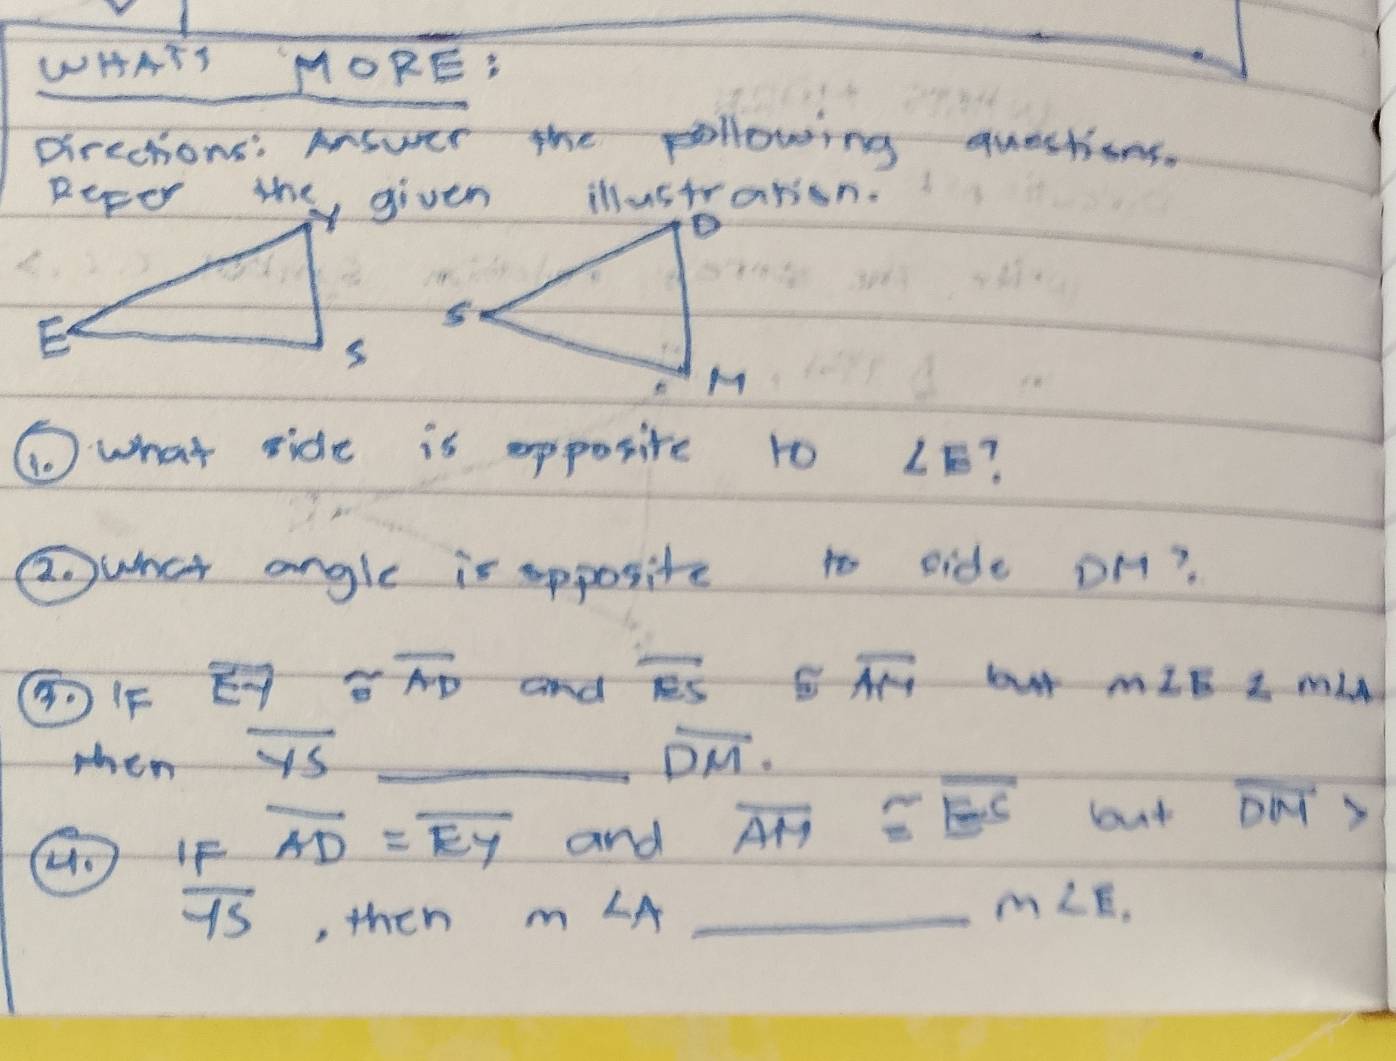 WHATS MORE:
Directions: Answer the following questions.
Refer the given illustration.
Y
D
E
S
S
M
1. what side is opposite to ∠E?
2. what angle is opposite to side DM?
3. IF EY ≅ AD and ES ≅ AM but m∠E ∠ m∠A
then YS ________ DM.
4. IF AD = EY and AM ≅ ES but DM >
YS, then m ∠A ________ m∠E.